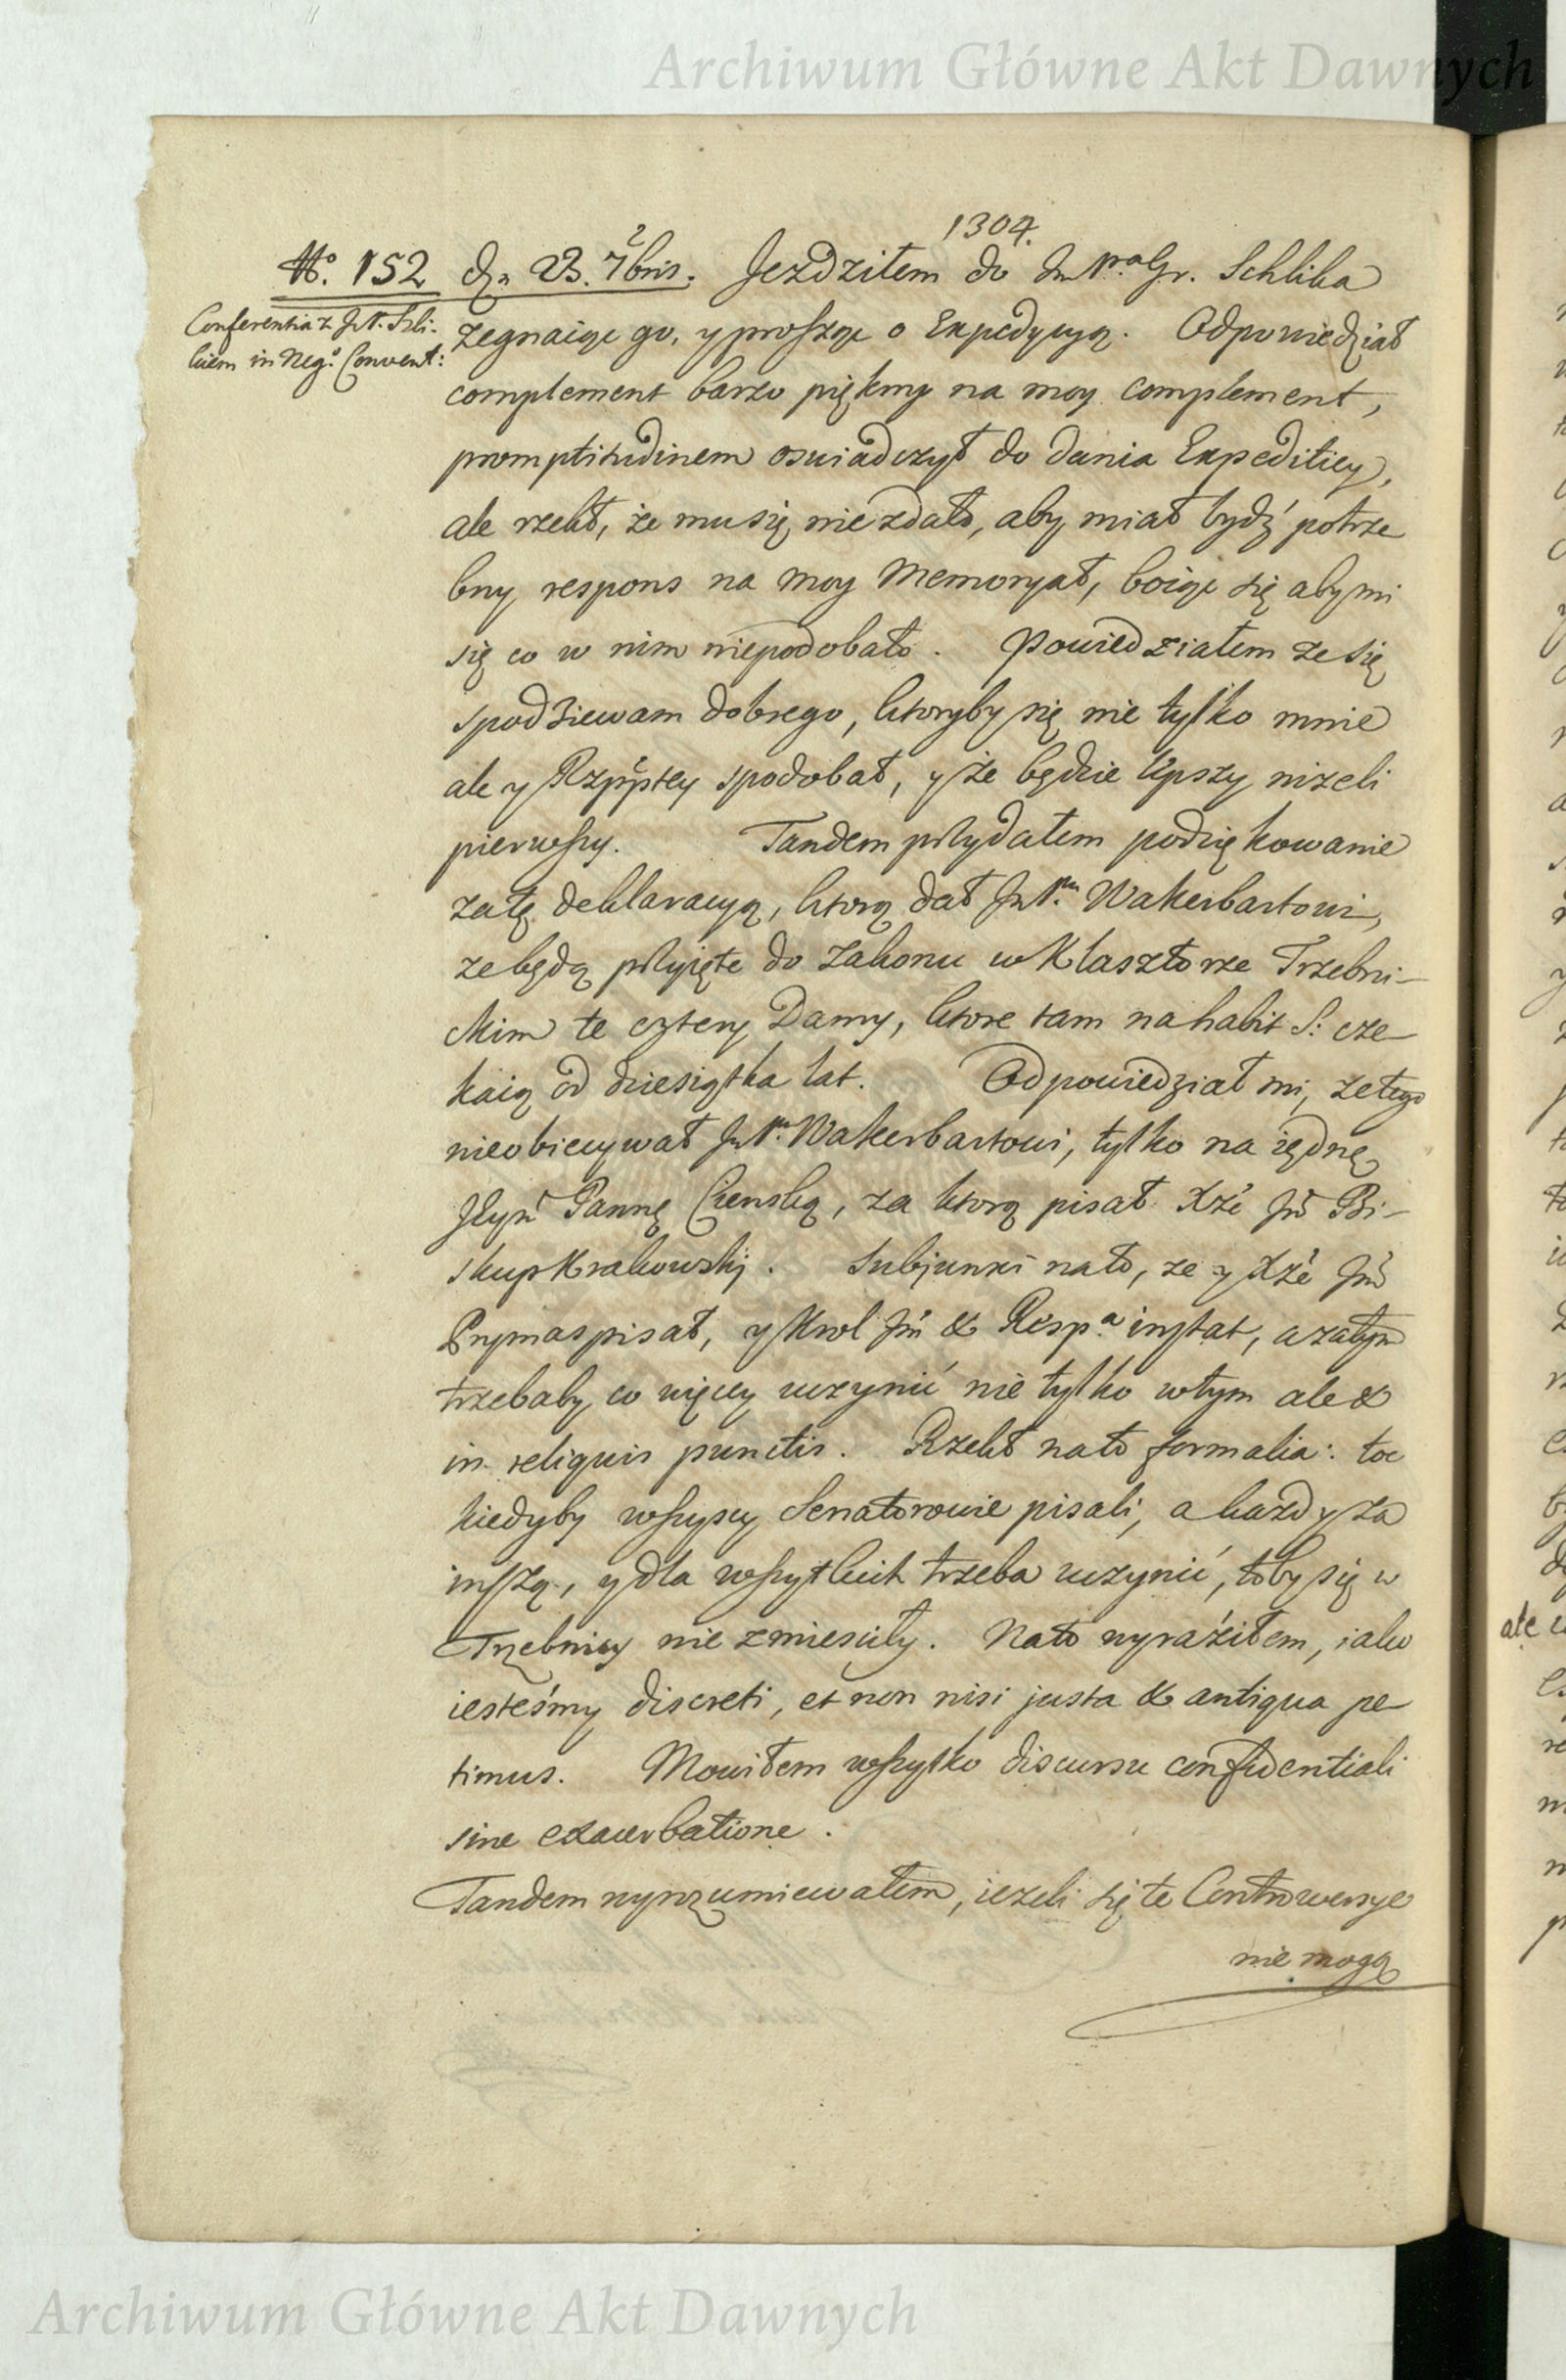 Archiwum Główne Akt Dawnych
1304.
No. 152 d. 23. 7bris. Jezdziłem do Gr. Schlika
Conferentia z JW. Szli-
kiem in Neg.o Convent:
zegnaiąc go, y proszę o Expedycyą. Odpowiedział
complement barzo piękny na moy complement,
promptitudinem oswiadczył do dania Expeditiey,
ale rzekł, że mu się nie zdało, aby miał bydź potrze
bny respons na moy Memoryał, boiąc się aby mi
się co w nim niepodobało. Powiedziałem ze się
spodziewam dobrego, ktoryby się nie tylko mnie
ale y Rzpptey spodobał, y że będzie lepszy nizeli
pierwszy. Tandem przydałem podziękowanie
za tę deklaracyą, ktorą dał Wakerbartowi,
ze będą przyięte do Zakonu w Klasztorze Trzebni-
ckim te cztery Damy, ktore tam na habit S: cze-
kaią od dziesiątka lat. Odpowiedział mi, ze tego
nieobiecywał Wakerbartowi, tylko na iędnę
Pannę, za ktorą pisał Xże Jmć Bi-
skup Krakowskj. Subjunxi na to, ze y Xże Jmć
Prymas pisał, y Krol Jm & Resp.a instat, a zatym
trzebaby co więcey uczynić nie tylko w tym ale &
in reliquis punctis. Rzekł na to formalia: toc
kiedyby wszyscy Senatorowie pisali, a kazdy za
inszą, y dla wszytkich trzeba uczynić, toby się w
Trzebnicy nie zmieściły. Na to wyraźiłem, iako
iesteśmy discreti, et non nisi justa & antiqua pe
timus. Mowiłem wszytko discursu confidentiali
sine exacerbatione.
Tandem wyrozumiewałem, iezeli się te Controwersye
nie mogą
Archiwum Główne Akt Dawnych